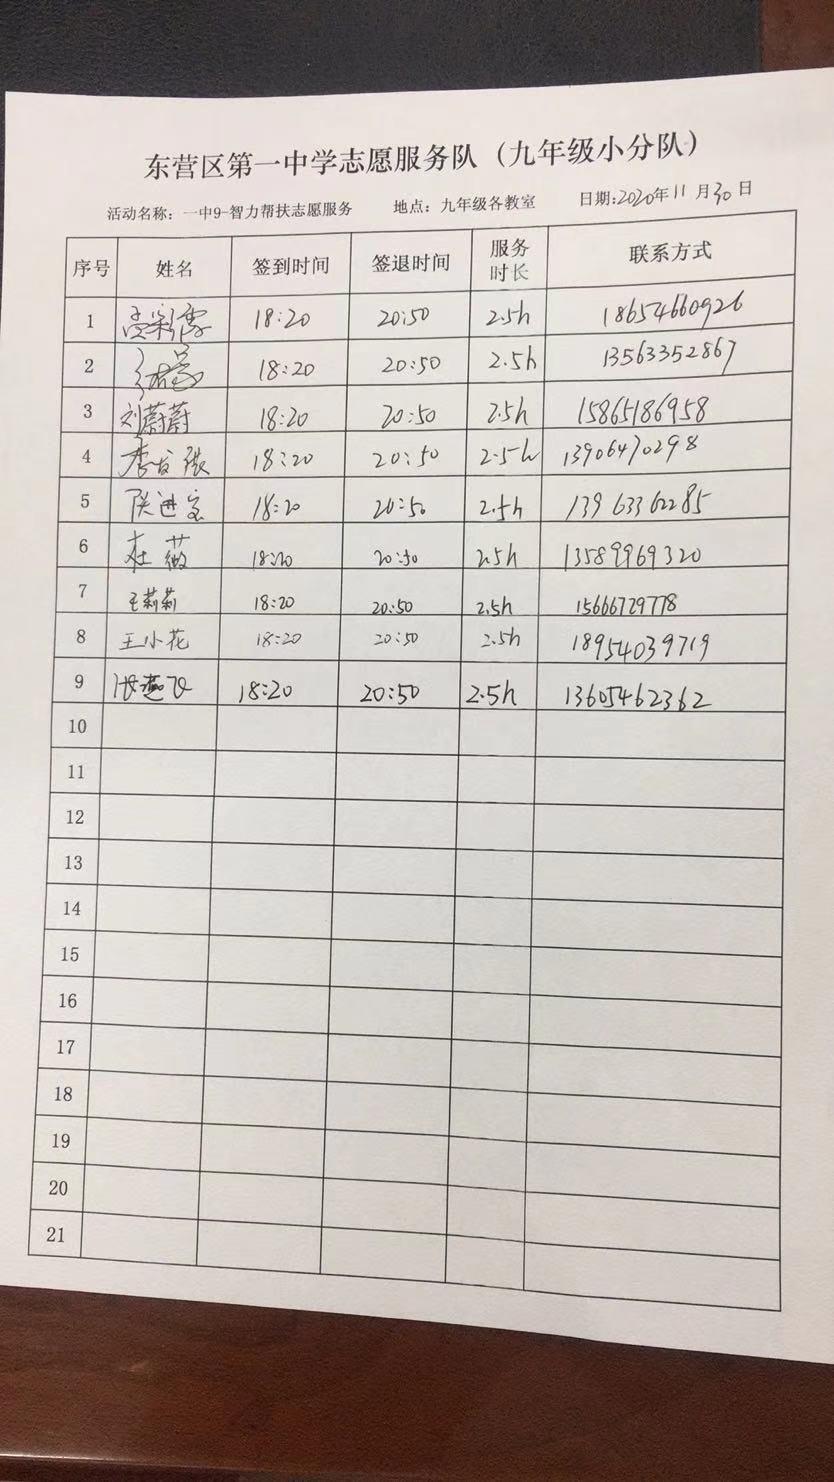 东营区第一中学志愿服务队（九年级小分队）
活动名称：一中9-智力帮扶志愿服务 地点：九年级各教室 日期:2020年11月30日
序号 姓名 签到时间 签退时间 服务时长 联系方式
1 18:20 20:50 2.5h 18654660926
2 18:20 20:50 2.5h 13563352867
3 刘蔚蔚 18:20 20:50 2.5h 15865186958
4 18:20 20:50 2.5h 13906470298
5 18:20 20:50 2.5h 13963362285
6 杜薇 18:20 20:50 2.5h 13589969320
7 王莉莉 18:20 20:50 2.5h 15666729778
8 王小花 18:20 20:50 2.5h 18954039719
9 张燕飞 18:20 20:50 2.5h 13605462362
10
11
12
13
14
15
16
17
18
19
20
21